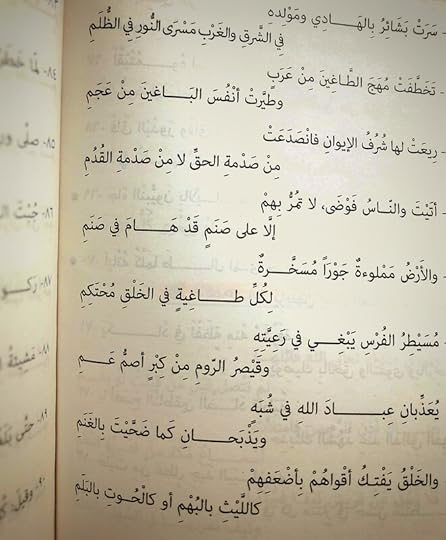 - سَرَتْ بَشَائرُ بِالهَادِي ومَوْلِدِهِ
في الشَّرقِ والغَرْبِ مَسْرَى النُّورِ في الظُّلَمِ
- تَخَطَّفَتْ مُهَجَ الطَّاغِينَ مِنْ عَرَبٍ
وطَيَّرتْ أنْفُسَ البَاغينَ مِنْ عَجَمِ
- رِيعَتْ لها شُرُفُ الإيوانِ فانْصَدَعَتْ
مِنْ صَدْمةِ الحقِّ لا مِنْ صَدْمةِ القُدُمِ
- أتَيْتَ والنَّاسُ فَوْضَى، لا تمُرُّ بهِمْ
إلَّا على صَنَمٍ قَدْ هَامَ في صَنَمِ
- والأَرْضُ مَمْلوءةٌ جَوْرًا مُسَخَّرةٌ
لِكُلِّ طاغِيةٍ في الخَلْقِ مُحْتَكِمِ
- مُسَيْطِرُ الفُرْسِ يَبْغِي في رعَيَّتِه
وقَيْصَرُ الرّومِ مِنْ كِبْرٍ أصمُّ عَمِ
يُعَذِّبانِ عِبادَ اللهِ في شُبَهٍ
ويَذْبَحانِ كَما ضَحَّيْتَ بِالغَنَمِ
والخَلْقُ يَفْتِكُ أقْواهُمْ بِأضْعَفِهِمْ
كاللَّيْثِ بِالبُهْمِ أو كالْحُوتِ بِالبَلَمِ
٨٤
٨٥
٨٦
٨٧
٨٨
٨٩
٩٠